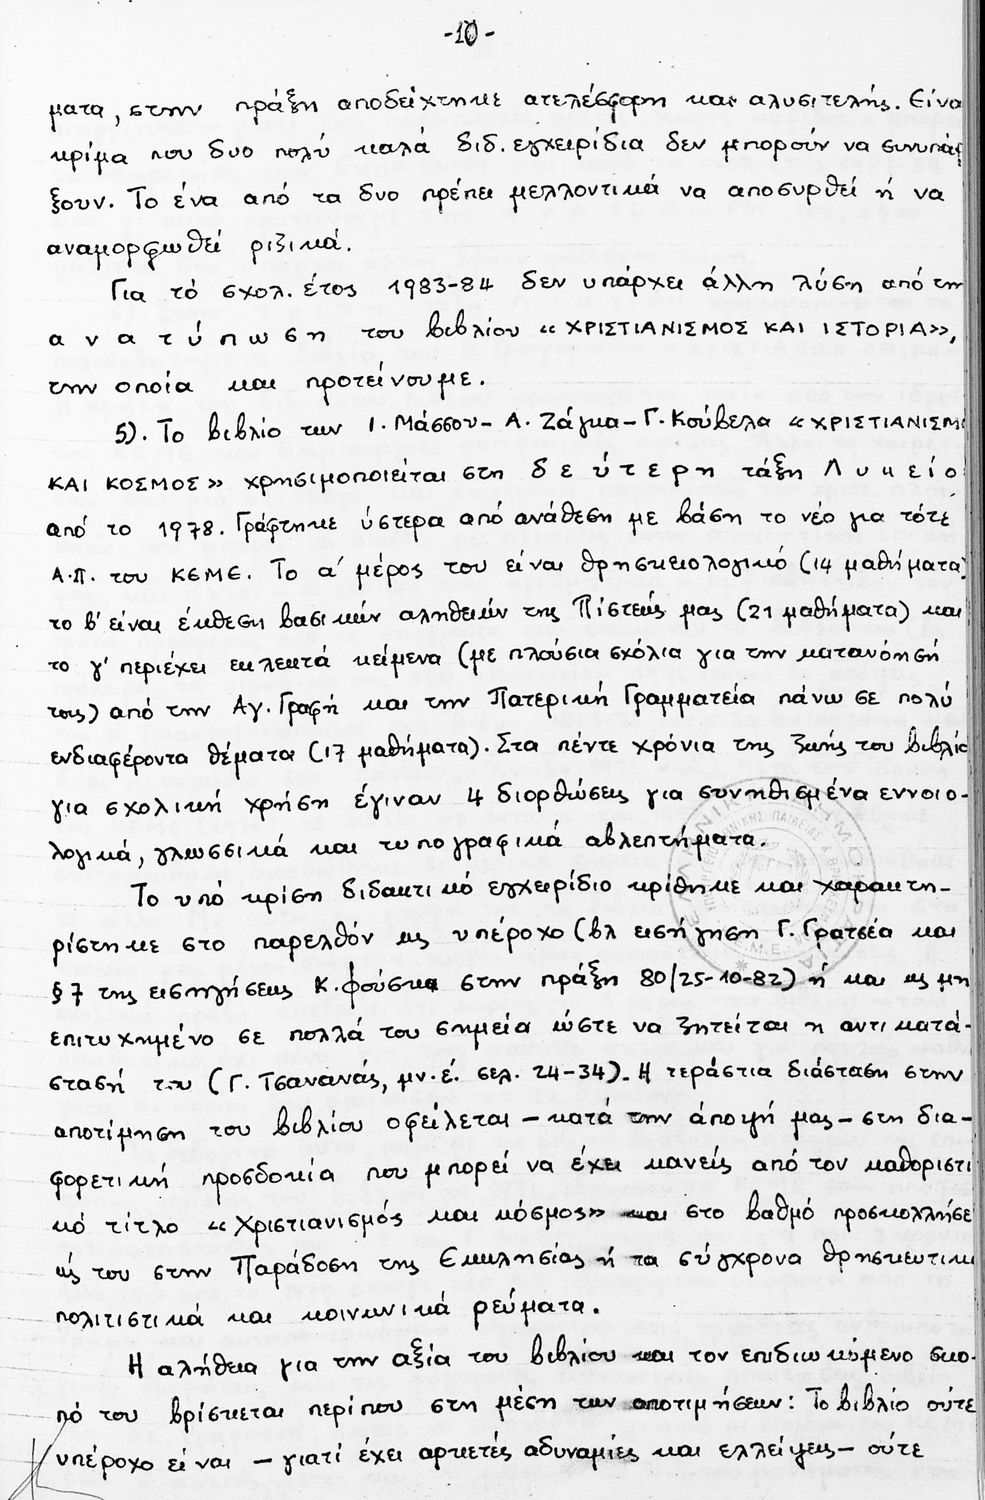 -10-
ματα, στην πράξη αποδείχτηκε ατελέσφορη και αλυσιτελής. Είνα
κρίμα που δυο πολύ καλά διδ. εγχειρίδια δεν μπορούν να συνυπάρ
ξουν. Το ένα από τα δυο πρέπει μελλοντικά να αποσυρθεί ή να
αναμορφωθεί ριζικά.
Για τό σχολ. έτος 1983-84 δεν υπάρχει άλλη λύση από την
α ν α τ ύ π ω σ η του βιβλίου «ΧΡΙΣΤΙΑΝΙΣΜΟΣ ΚΑΙ ΙΣΤΟΡΙΑ»,
την οποία και προτείνουμε.
5). Το βιβλίο των Ι. Μάσσου- Α. Ζάγκα- Γ. Κούβελα «ΧΡΙΣΤΙΑΝΙΣΜ
ΚΑΙ ΚΟΣΜΟΣ» χρησιμοποιείται στη δ ε ύ τ ε ρ η τάξη Λ υ κ ε ί ο
από το 1978. Γράφτηκε ύστερα από ανάθεση με βάση το νέο για τότε
Α.Π. του ΚΕΜΕ. Το α' μέρος του είναι θρησκειολογικό (14 μαθήματα)
το β' είναι έκθεση βασικών αληθειών της Πίστεώς μας (21 μαθήματα) και
το γ' περιέχει εκλεκτά κείμενα (με πλούσια σχόλια για την κατανόησή
τους) από την Αγ. Γραφή και την Πατερική Γραμματεία πάνω σε πολύ
ενδιαφέροντα θέματα (17 μαθήματα). Στα πέντε χρόνια της ζωής του βιβλίο
για σχολική χρήση έγιναν 4 διορθώσεις για συνηθισμένα εννοιο-
λογικά, γλωσσικά και τυπογραφικά αβλεπτήματα.
Το υπό κρίση διδακτικό εγχειρίδιο κρίθηκε και χαρακτη-
ρίστηκε στο παρελθόν ως υπέροχο (βλ εισήγηση Γ. Γρατσέα και
§ 7 της εισηγήσεως Κ. Φούσκα στην πράξη 80/25-10-82) ή και ως μη
επιτυχημένο σε πολλά του σημεία ώστε να ζητείται η αντικατά-
στασή του (Γ. Τσανανάς, μν. έ. σελ. 24-34). Η τεράστια διάσταση στην
αποτίμηση του βιβλίου οφείλεται - κατά την άποψή μας - στη δια-
φορετική προσδοκία που μπορεί να έχει κανείς από τον καθοριστι
κό τίτλο «Χριστιανισμός και κόσμος» και στο βαθμό προσκολλήσε
ώς του στην Παράδοση της Εκκλησίας ή τα σύγχρονα θρησκευτικ
πολιτιστικά και κοινωνικά ρεύματα.
Η αλήθεια για την αξία του βιβλίου και τον επιδιωκόμενο σκο-
πό του βρίσκεται περίπου στη μέση των αποτιμήσεων: Το βιβλίο ούτε
υπέροχο είναι - γιατί έχει αρκετές αδυναμίες και ελλείψεις - ούτε